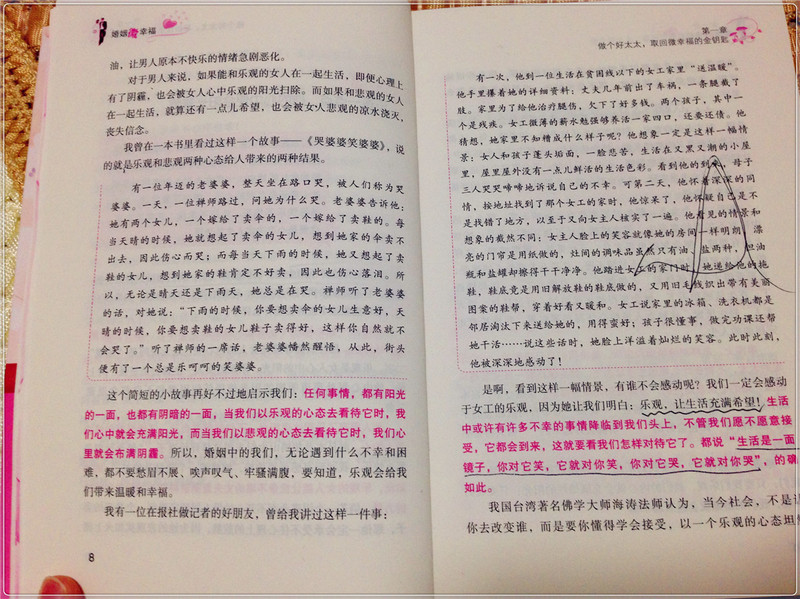 婚姻微幸福
油，让男人原本不快乐的情绪急剧恶化。
对于男人来说，如果能和乐观的女人在一起生活，即便心理上
有了阴霾，也会被女人心中乐观的阳光扫除。而如果和悲观的女人
在一起生活，就算还有一点儿希望，也会被女人悲观的凉水浇灭，
丧失信念。
我曾在一本书里看过这样一个故事——《哭婆婆笑婆婆》，说
的就是乐观和悲观两种心态给人带来的两种结果。
有一位年迈的老婆婆，整天坐在路口哭，被人们称为哭
婆婆。一天，一位禅师路过，问她为什么哭。老婆婆告诉他：
她有两个女儿，一个嫁给了卖伞的，一个嫁给了卖鞋的。每
当天晴的时候，她就想起了卖伞的女儿，想到她家的伞卖不
出去，因此伤心而哭；而每当天下雨的时候，她又想起了卖
鞋的女儿，想到她家的鞋肯定不好卖，因此也伤心落泪。所
以，无论是晴天还是下雨天，她总是在哭。禅师听了老婆婆
的话，对她说：“下雨的时候，你要想卖伞的女儿生意好，天
晴的时候，你要想卖鞋的女儿鞋子卖得好，这样你自然就不
会哭了。”听了禅师的一席话，老婆婆幡然醒悟，从此，街头
便有了一个总是乐呵呵的笑婆婆。
这个简短的小故事再好不过地启示我们：任何事情，都有阳光
的一面，也都有阴暗的一面，当我们以乐观的心态去看待它时，我
们心中就会充满阳光，而当我们以悲观的心态去看待它时，我们心
里就会布满阴霾。所以，婚姻中的我们，无论遇到什么不幸和困
难，都不要愁眉不展、唉声叹气、牢骚满腹，要知道，乐观会给我
们带来温暖和幸福。
我有一位在报社做记者的好朋友，曾给我讲过这样一件事：
8
第一章
做个好太太，取回微幸福的金钥匙
有一次，他到一位生活在贫困线以下的女工家里“送温暖”。
他手里攥着她的详细资料：丈夫几年前出了车祸，一条腿截了
肢。家里为了给他治疗腿伤，欠下了好多钱。两个孩子，其中一
个是残疾。女工微薄的薪水勉强够养活一家四口，还要还债。他
猜想，她家里不知糟成什么样子呢？他想象一定是这样一幅情
景：女人和孩子蓬头垢面，一脸悲苦，生活在又黑又潮的小屋
里，屋里屋外没有一点儿鲜活的生活色彩。看到他的到来，母子
三人哭哭啼啼地诉说自己的不幸。可第二天，他怀着深深的同
情，按地址找到了那个女工的家时，他惊呆了，他怀疑自己是不
是找错了地方，以至于又向女主人核实了一遍。他看见的情景和
想象的截然不同：女主人脸上的笑容就像她的房间一样明朗，漂
亮的门帘是用纸做的，灶间的调味品虽然只有油、盐两种，但油
瓶和盐罐却擦得干干净净。他踏进女工的家门时，她递给他的拖
鞋，鞋底竟是用旧解放鞋的鞋底做的，又用旧毛线织出带有美丽
图案的鞋帮，穿着好看又暖和。女工说家里的冰箱、洗衣机都是
邻居淘汰下来送给她的，用得蛮好；孩子很懂事，做完功课还帮
她干活……说这些话时，她脸上洋溢着灿烂的笑容。此时此刻，
他被深深地感动了！
是啊，看到这样一幅情景，有谁不会感动呢？我们一定会感动
于女工的乐观，因为她让我们明白：乐观，让生活充满希望！生活
中或许有许多不幸的事情降临到我们头上，不管我们愿不愿意接
受，它都会到来，这就要看我们怎样对待它了。都说“生活是一面
镜子，你对它笑，它就对你笑，你对它哭，它就对你哭”，的确
如此。
我国台湾著名佛学大师海涛法师认为，当今社会，不是让
你去改变谁，而是要你懂得学会接受，以一个乐观的心态坦